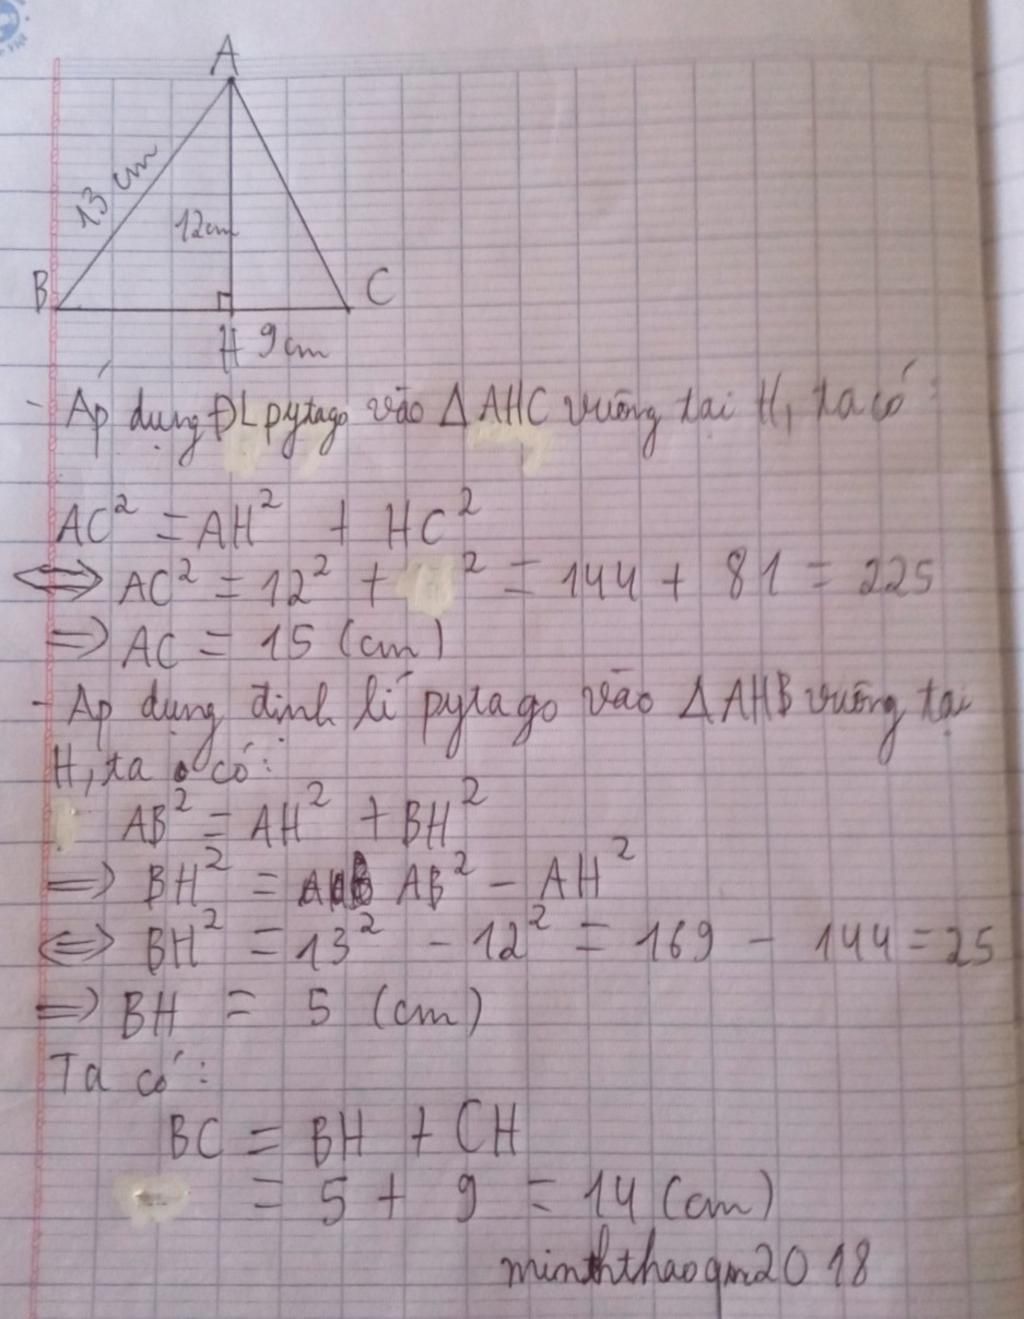 A
13 cm
12cm
B
C
H 9cm
- Áp dụng ĐL pytago vào Δ AHC vuông tại H, ta có:
AC² = AH² + HC²
⇔ AC² = 12² + ² = 144 + 81 = 225
⇒ AC = 15 (cm)
- Ap dụng định lí pytago vào Δ AHB vuông tại
H, ta có:
AB² = AH² + BH²
⇒ BH² = AB² - AH²
⇔ BH² = 13² - 12² = 169 - 144 = 25
⇒ BH = 5 (cm)
Ta có:
BC = BH + CH
= 5 + 9 = 14 (cm)